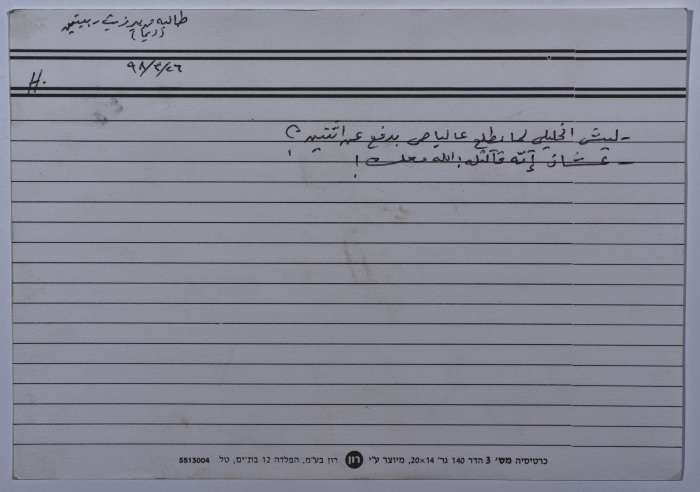 طالبه من بيرزيت - بيتين
(ريما)
٩٨/٣/٢٦
H.
- ليش الخليلي لما بطلع عالباص بدفع عن اثنين؟
- عشان إنّه قالتله: الله معك!
כרטיסיה מס' 3 הדר 140 גר' 20×14, מיוצר ע"י רון רון בע"מ, הפלדה 12 בת-ים, טל 5513004